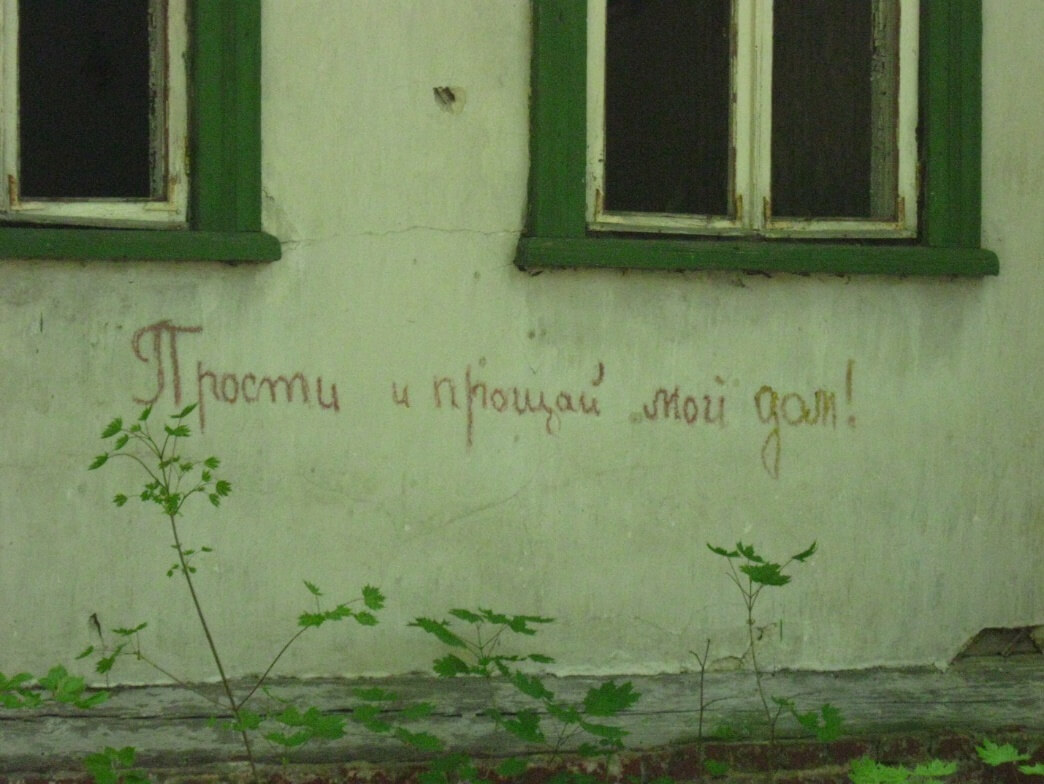 Прости и прощай мой дом!